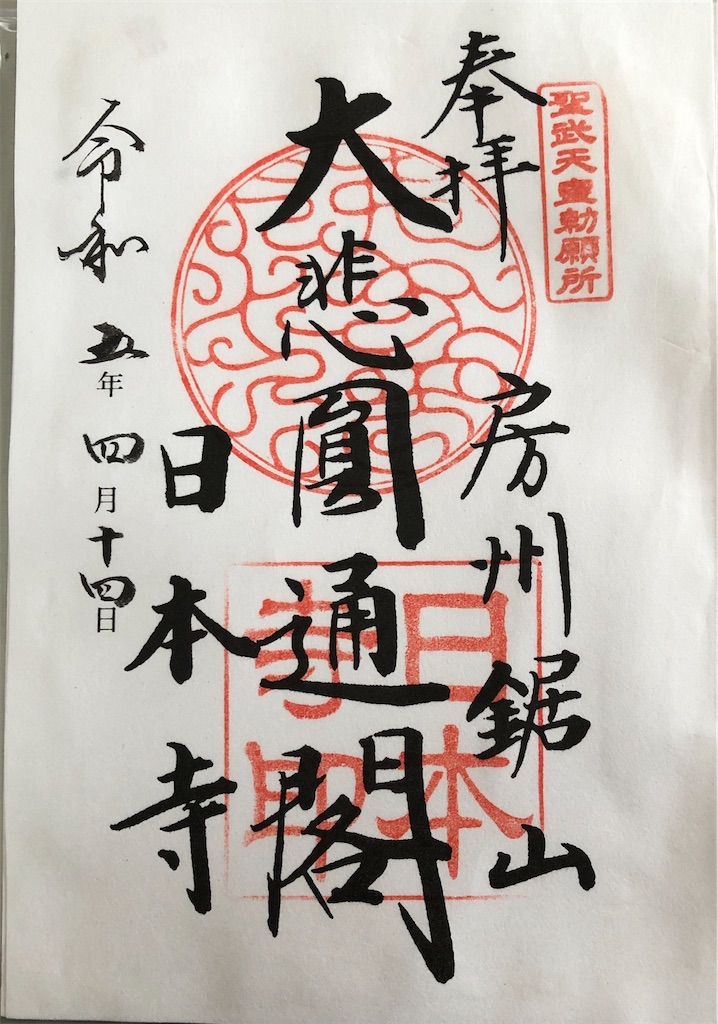 聖武天皇勅願所
奉拝
房州鋸山
大悲圓通閣
日本寺印
日本寺
令和五年四月十四日